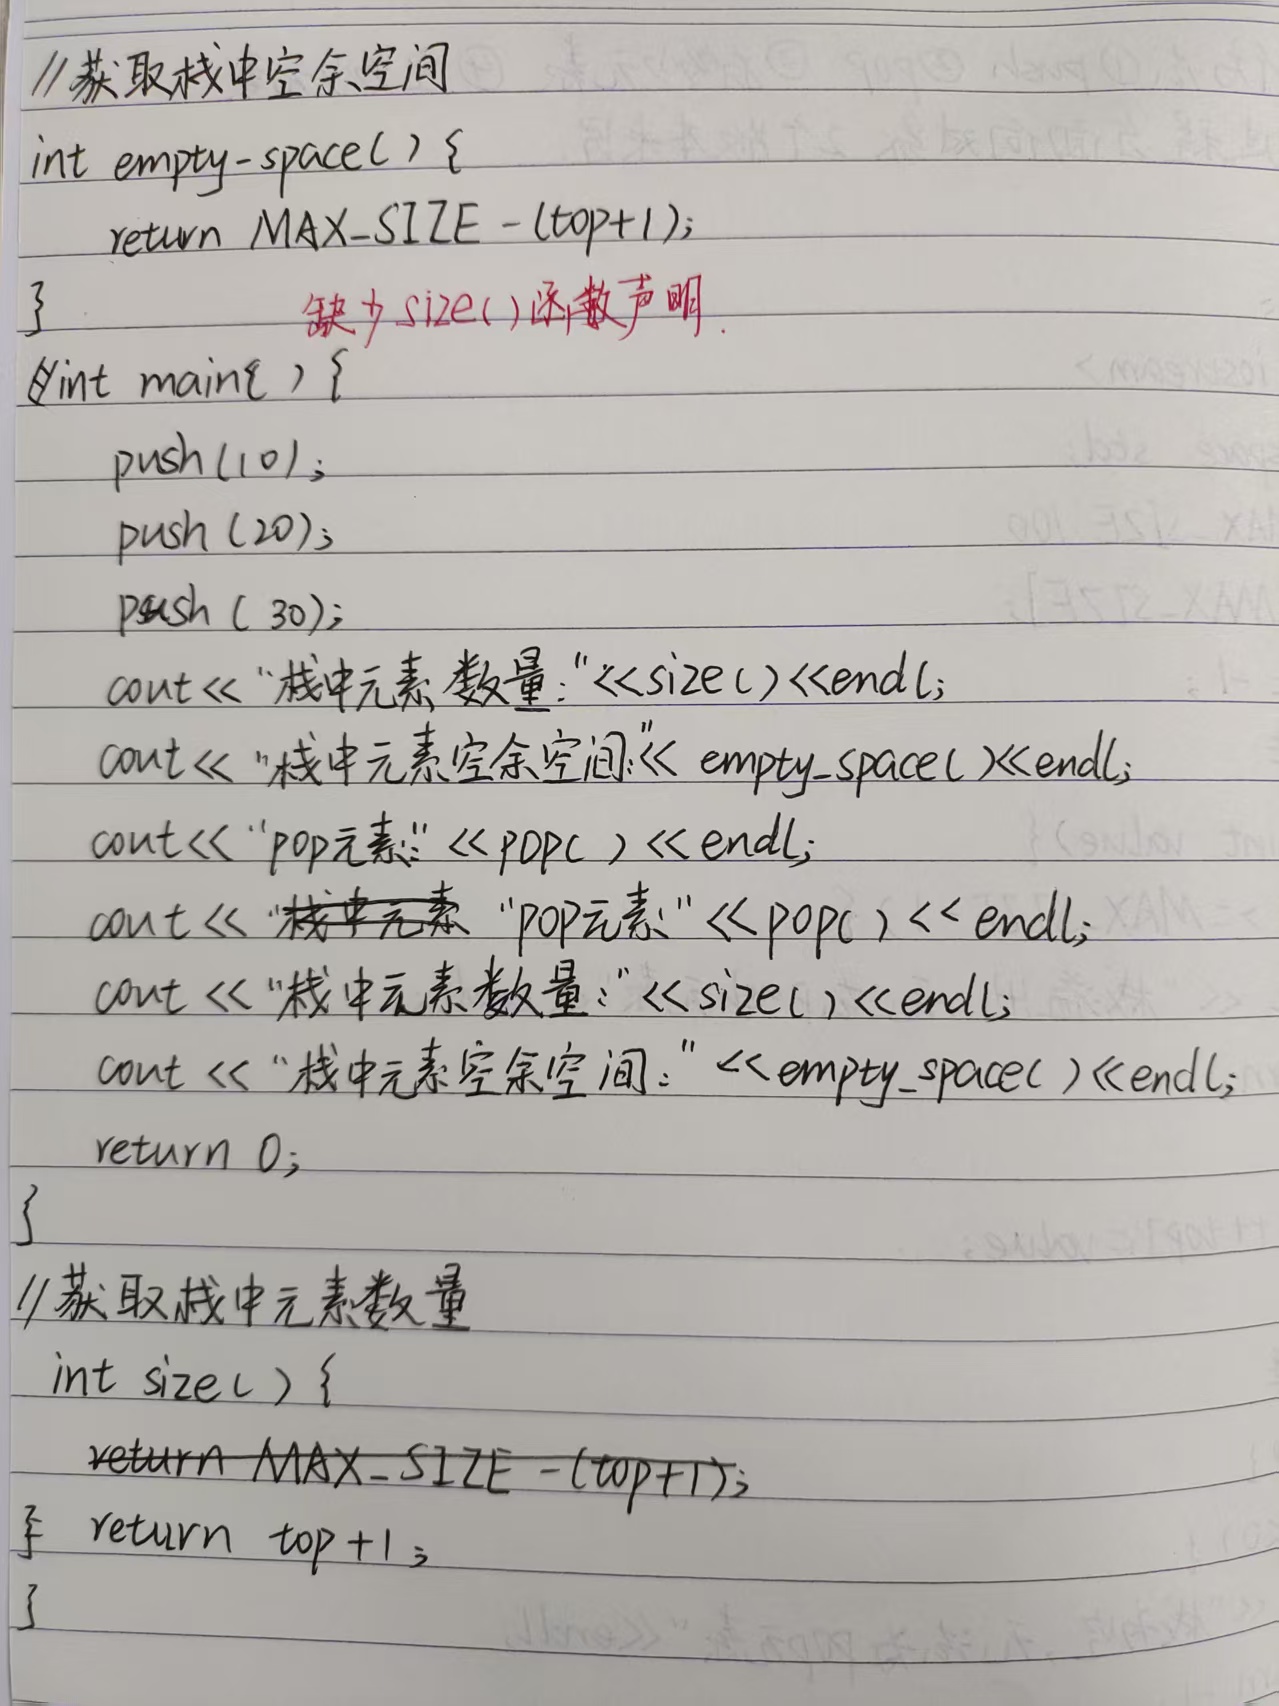 //获取栈中空余空间
int empty-space(){
return MAX_SIZE-(top+1);
}
缺少size()函数声明.
int main(){
push(10);
push(20);
push(30);
cout<<"栈中元素数量:"<<size()<<endl;
cout<<"栈中元素空余空间:"<<empty_space()<<endl;
cout<<"pop元素:"<<pop()<<endl;
cout<<"栈中元素 "pop元素:"<<pop()<<endl;
cout<<"栈中元素数量:"<<size()<<endl;
cout<<"栈中元素空余空间:"<<empty_space()<<endl;
return 0;
}
//获取栈中元素数量
int size(){
return MAX_SIZE-(top+1);
} return top+1;
}